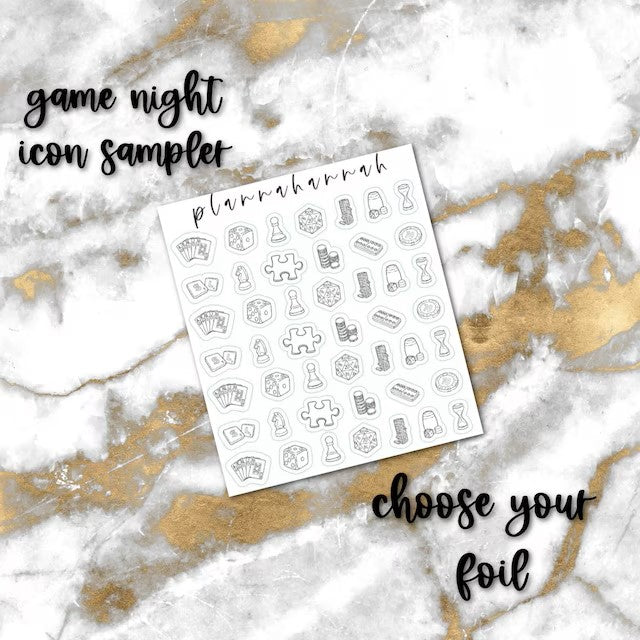 game night
icon sampler
plannahannah
choose your
foil